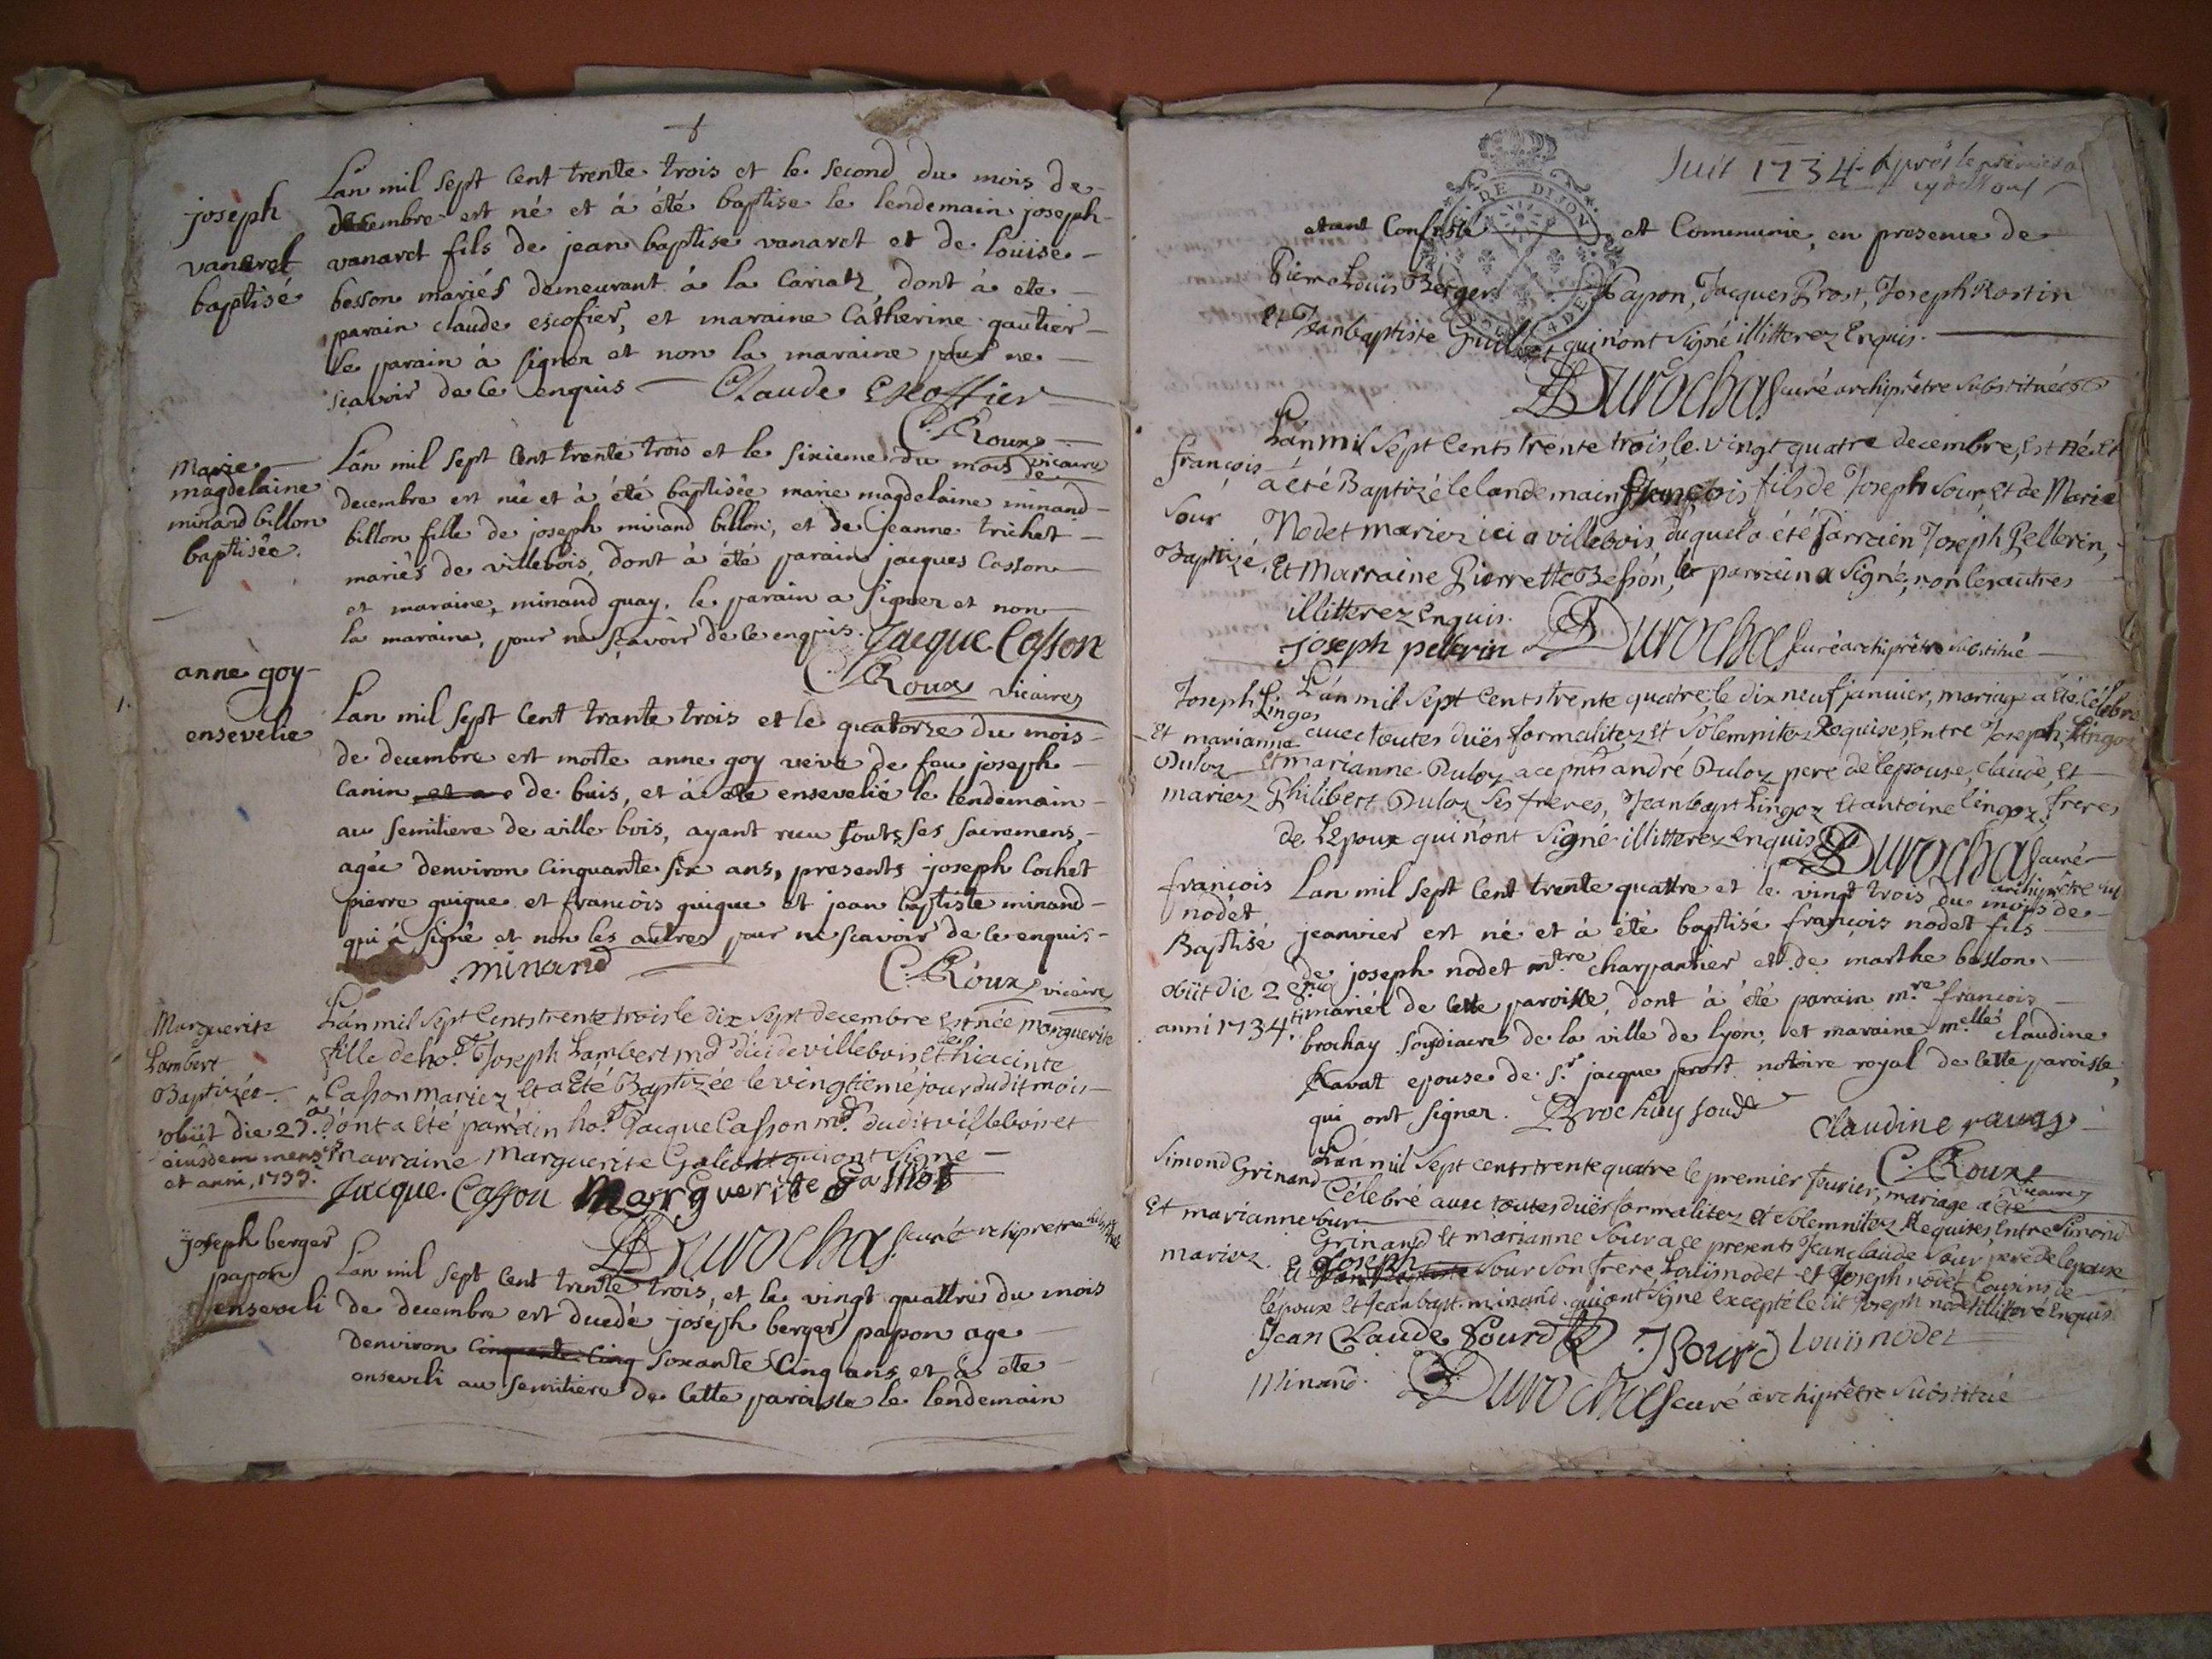 joseph
vanaret
baptisé
Lan mil sept cent trente trois et le second du mois de
decembre est né et à été baptise le lendemain joseph
vanaret fils de jean baptise vanaret et de louise
besson mariés demeurant à la cariatz dont à ete
parain claude escofier, et maraine Catherine gautier
le parain à signer et non la maraine pour ne
scavoir de ce enquis Claude Escoffier
C. Roux vicaire
Marie
magdelaine
minand billon
baptisée.
Lan mil sept cent trente trois et le sixieme du mois de
decembre est née et à été baptisée marie magdelaine minand
billon fille de joseph minand billon, et de jeanne trichet
mariés de villebois, dont à été parain jacques Casson
et maraine, minand guay, le parain a signer et non
la maraine, pour ne sçavoir de ce enquis. Jacque Casson
C. Roux vicaires
anne goy
ensevelie
Lan mil sept cent trante trois et le quatorze du mois
de decembre est morte anne goy veve de feu joseph
Canin de buis, et à ete ensevelie le lendemain
au semitiere de ville bois, ayant reçu touts ses sacremens,
agée denviron cinquante six ans, presents joseph Cochet
pierre guigue et francois guigue et jean baptiste minand
qui à signé et non les autres pour ne scavoir de ce enquis
minand C. Roux vicaire
Marguerite
Lambert
Baptizée
obiit die 27.a
eiusdem mensis
et anni, 1733.
Lan mil sept cents trente trois le dix sept decembre est née Marguerite
fille de ho.t Joseph Lambert md d'ici de villebois et de hiacinte
Casson mariez et a été Baptizée le vingtieme jour dudit mois
dont a été parrain ho.t Jacque Casson md. dudit villebois et
marraine Marguerite Galiot qui ont signé
Jacque Casson Marguerite Galliot
Durochas curé archipretre substitué
joseph berger
papon
enseveli
Lan mil sept cent trente trois, et le vingt quattre du mois
de decembre est duedé joséph berger papon age
denviron cinquante cinq soxante cinq ans, et à ete
enseveli au semitiere de cette paroisse le lendemain
Suit 1734
DE DIJON
etant Confessé et Comunie, en presence de
Pierre Louis Berger Papon, Jacques Prost, Joseph Rostin
Et Jean baptiste Guillet qui n'ont signé illitterez Enquis.
Durochas curé archiprêtre substitué
françois
Sour
Baptizé.
Lan mil sept cents trente trois, le vingt quatre decembre, est né et
a été Baptizé le landemain françois fils de Joseph Sour, et de Marie
Nodet mariez ici a villebois, duquel a été Parrain Joseph Pellerin,
Et Marraine Pierrette Besson, le parrain a signé, non les autres
illitterez enquis.
Joseph pellerin Durochas curé archiprêtre substitué
Joseph Lingos
Et marianne
Duloz
mariez
Lan mil sept cents trente quatre, le dix neuf janvier, mariage a été célébré
avec toutes duës formalitez et solemnitez Requises, Entre Joseph Lingoz
Et marianne Duloz, a ce pnts andré Duloz pere de lepouse, claude, Et
Philibert Duloz ses freres, Jean bapt Lingoz et antoine lingoz, freres
de l'Epoux qui n'ont signé illitterez enquis Durochas curé
archiprêtre
françois
nodet
Baptisé
obiit die 28
anni 1734.
Lan mil sept cent trente quattre et le vingt trois du mois de
jeanvier est né et à été baptisé françois nodet fils
de joseph nodet m.tre charpantier et de marthe besson
mariét de cette paroisse, dont à été parain m.re francois
brochay soudiacre de la ville de lyon, et maraine m.elle claudine
Ravat epouse de s.r jacque prost notaire royal de cette paroisse,
qui ont signer. Brochay soud. Claudine ravat
C. Roux vicaire
Simond Grinand
Et marianne sour
mariez.
Lan mil sept cents trente quatre le premier fevrier, mariage a été
Célebré avec toutes duës formalitez et solemnitez Requises, Entre Simond
Grinand et marianne Sour a ce presents Jean claude Sour pere de lepouse
Et Joseph Sour son frere, Loüis nodet et Joseph nodet Cousins de
lépoux et Jean bapt. minand. qui ont signé excepté le dit Joseph nodet illitéré Enquis.
Jean Claude Sourd JSourd Louis nodet
Minand. Durochas curé archiprêtre substitué